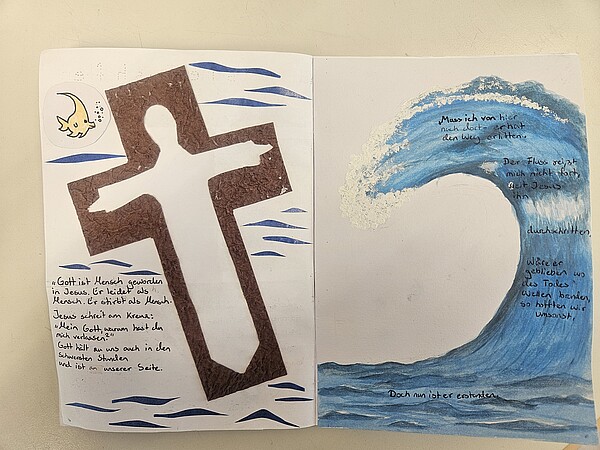 „Gott ist Mensch geworden
in Jesus. Er leidet als
Mensch. Er stirbt als Mensch.
Jesus schreit am Kreuz:
„Mein Gott, warum hast du
mich verlassen?"
Gott hält zu uns auch in den
schwersten Stunden
und ist an unserer Seite.
Muss ich von hier
nach dort - er hat
den Weg erlitten.
Der Fluss reißt
mich nicht fort,
seit Jesus
ihn
durchschritten.
Wäre er
geblieben wo
des Todes
Wellen branden,
so hofften wir
umsonst.
Doch nun ist er erstanden.